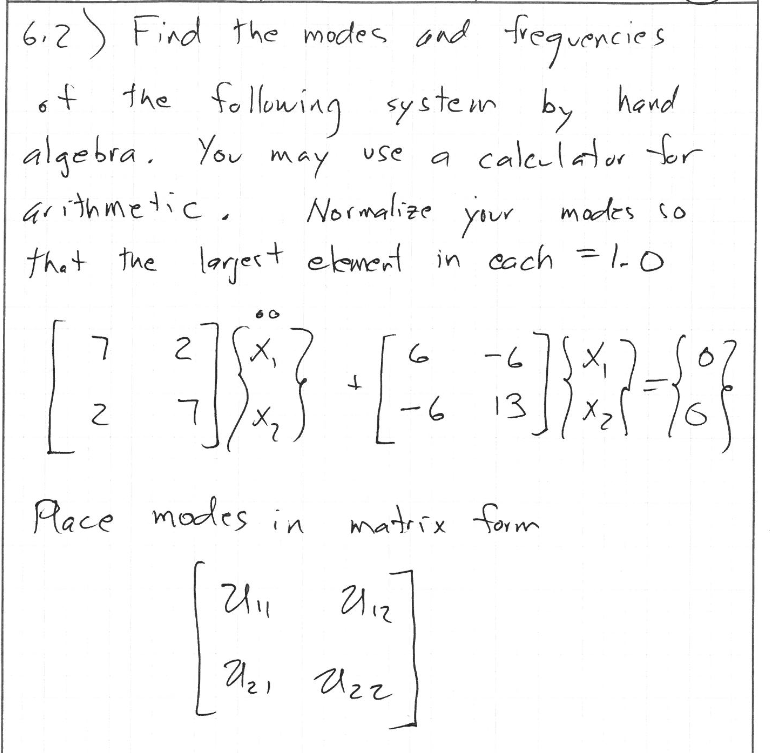 6.2) Find the modes and frequencies
of the following system by hand
algebra. You may use a calculator for
arithmetic. Normalize your modes so
that the largest element in each = 1.0
[7 2; 2 7]{ẍ₁; ẍ₂} + [6 -6; -6 13]{x₁; x₂} = {0; 0}
Place modes in matrix form
[u₁₁ u₁₂; u₂₁ u₂₂]